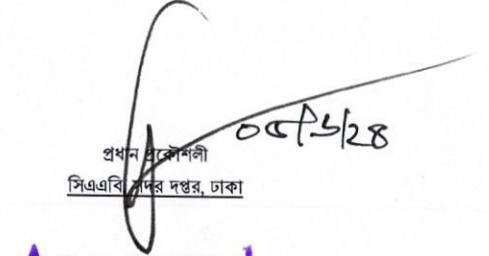 ০৫/৬/২৪
প্রধান প্রকৌশলী
সিএএবি, সদর দপ্তর, ঢাকা